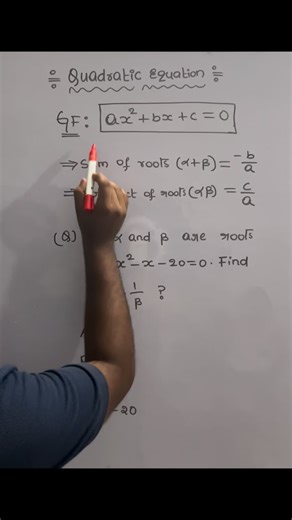 :: Quadratic Equation ::
GF: ax² + bx + c = 0
⇒ Sum of roots (α+β) = -b/a
⇒ of roots (αβ) = c/a
(Q) α and β are roots
x² - x - 20 = 0. Find
1/β ?
-20